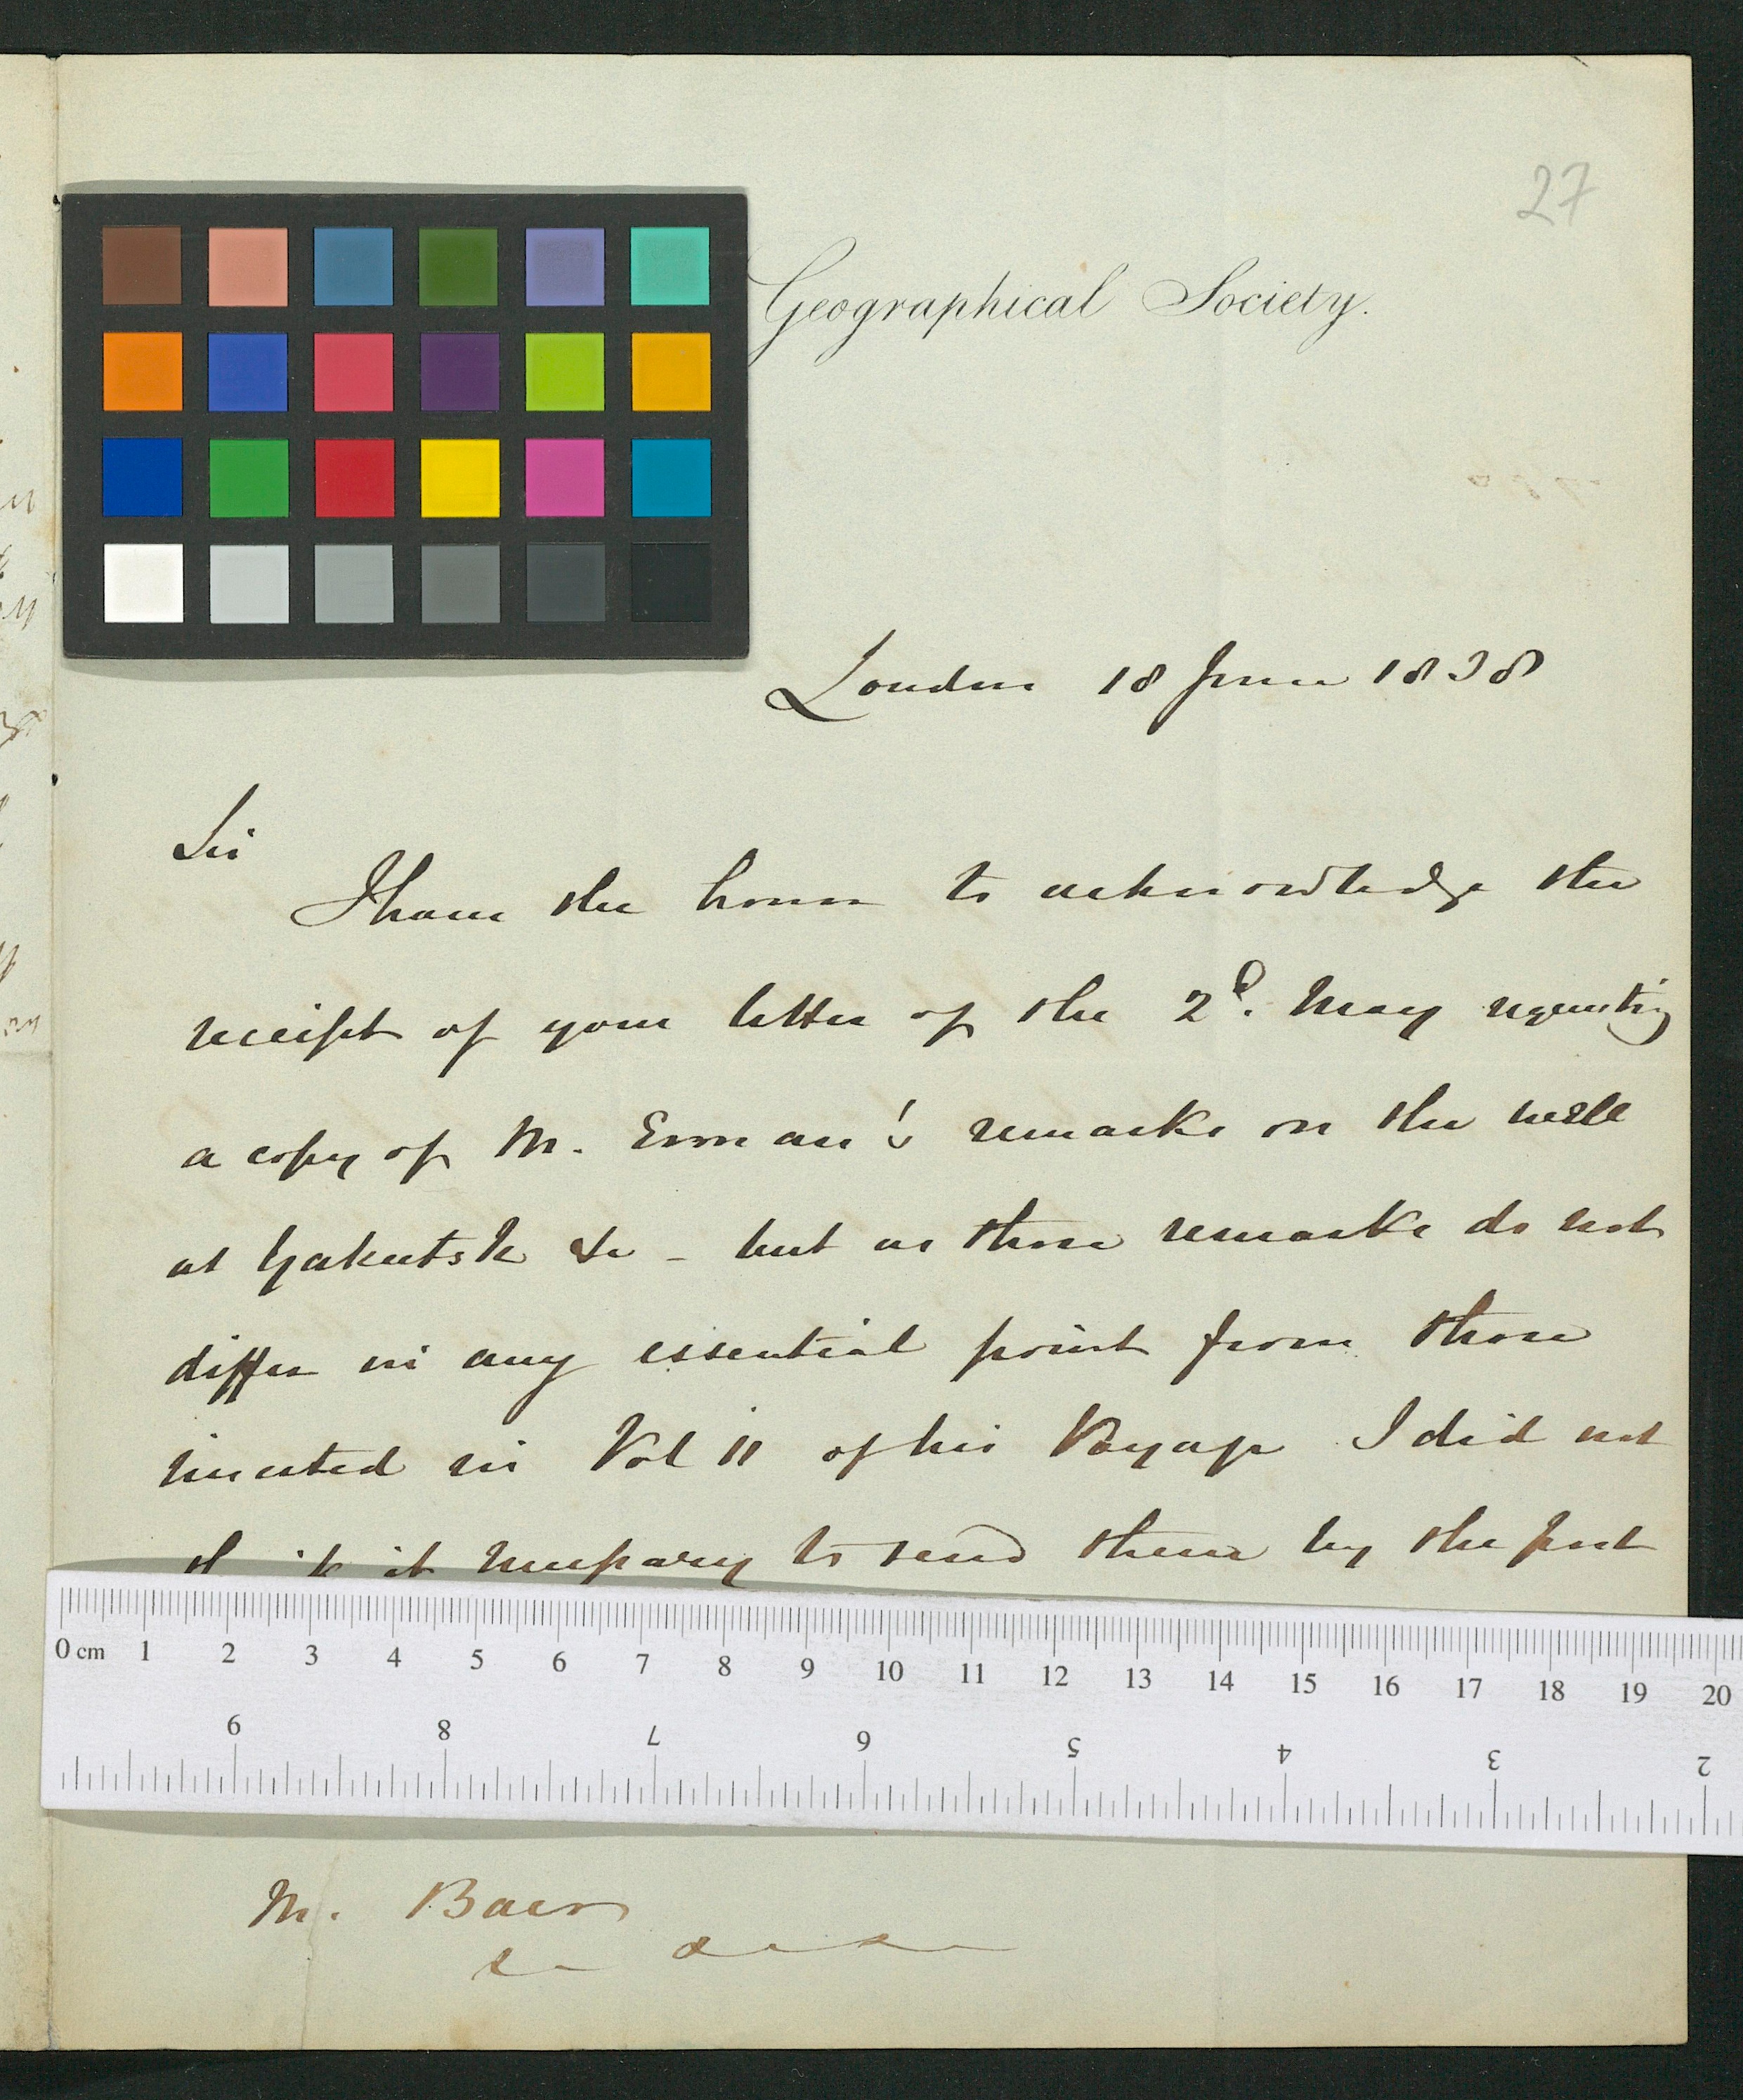 27
Geographical Society.
London 18 June 1838
Sir
I have the honor to acknowledge the
receipt of your letter of the 2d. May requesting
a copy of M. Erman's remarks on the well
at Yakutsk &c - but as those remarks do not
differ in any essential point from those
inserted in Vol II of his Voyage I did not
think it necessary to send them by the post
0 cm 1 2 3 4 5 6 7 8 9 10 11 12 13 14 15 16 17 18 19 20
9 8 7 6 5 4 3 2
M. Baer